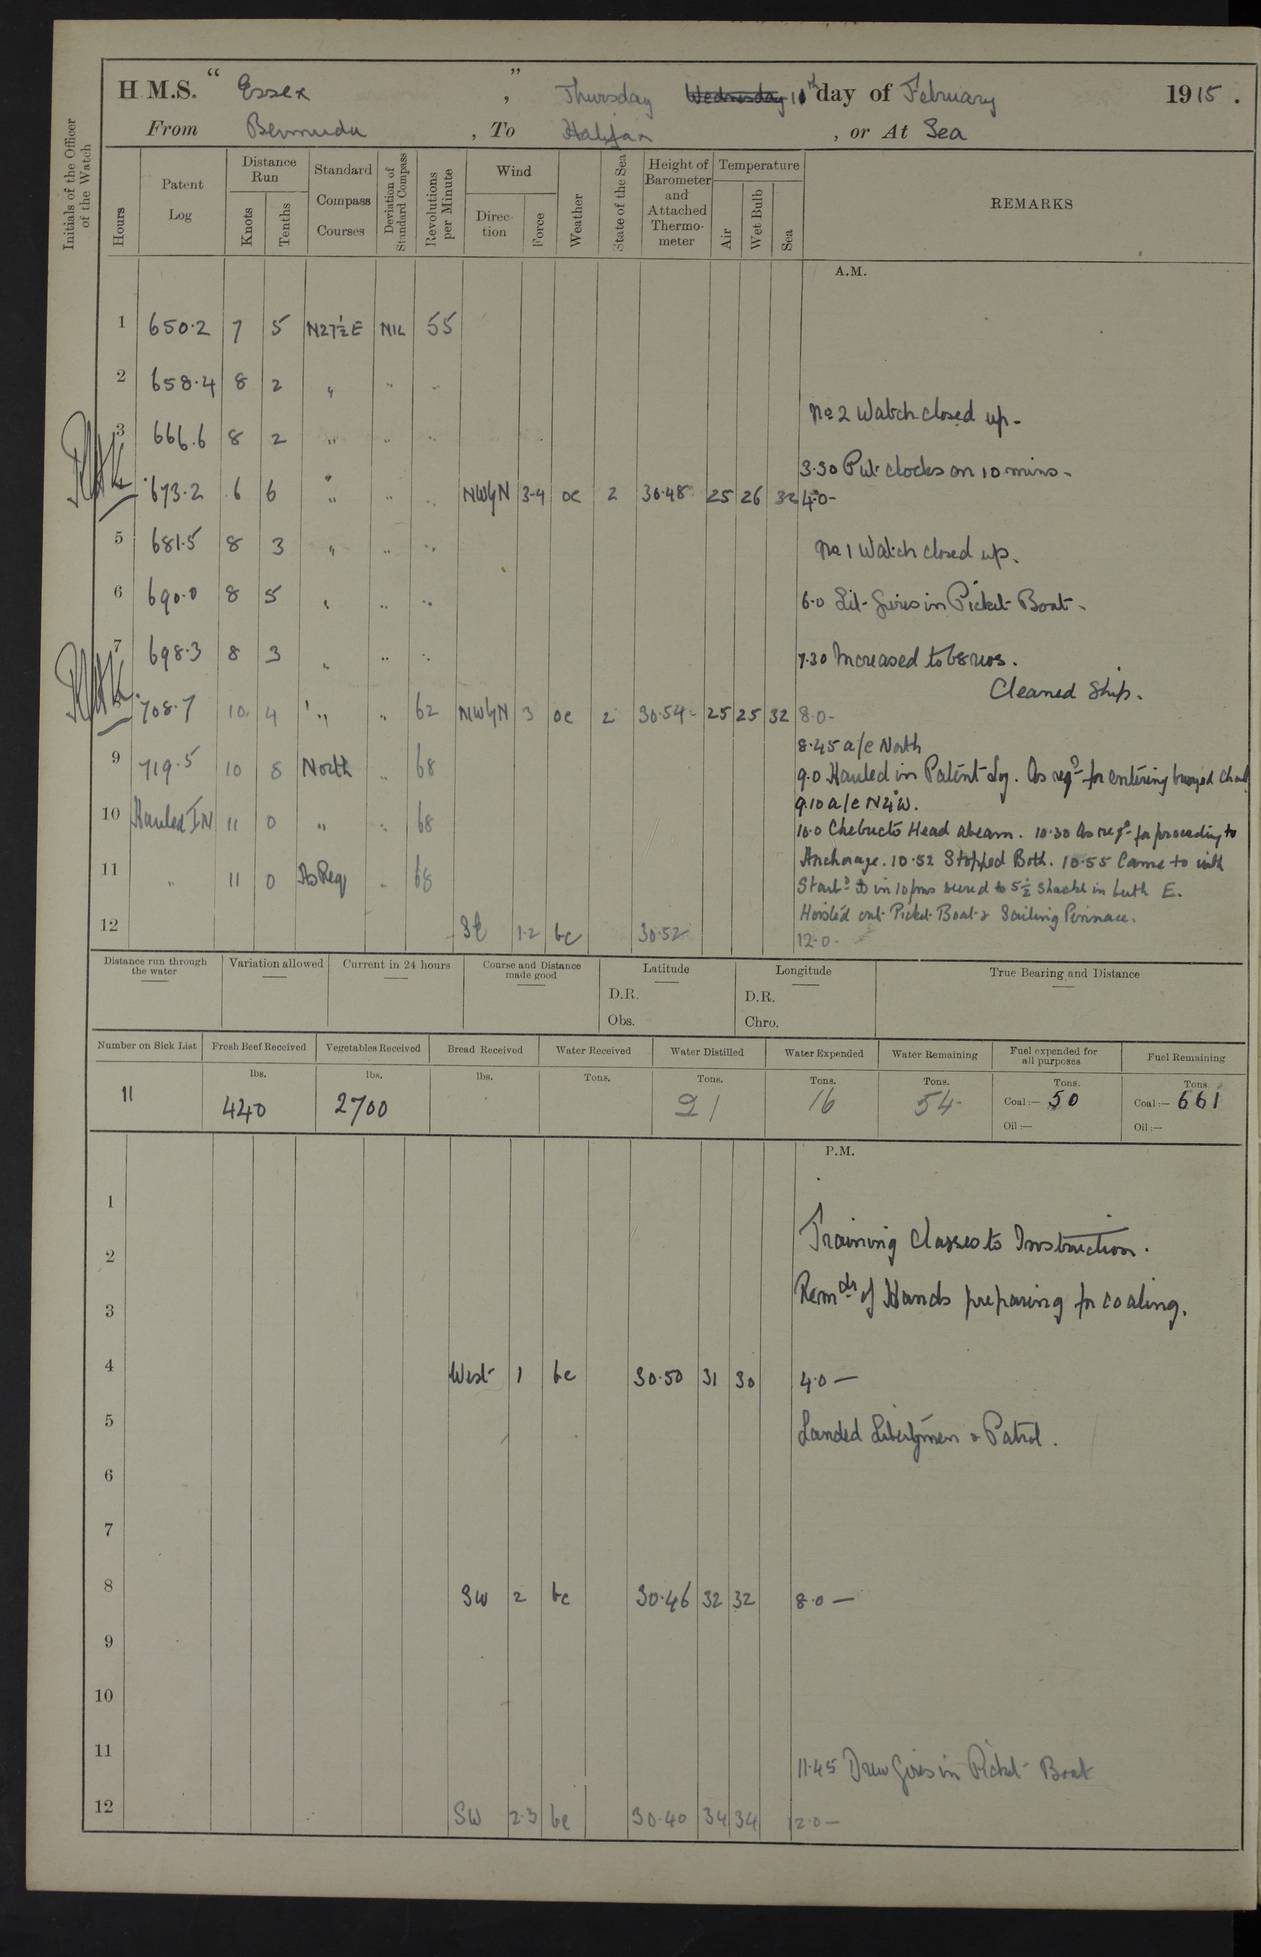 H.M.S. “ Essex ” , Thursday Wednesday 10th day of February 1915 .
From Bermuda , To Halifax , or At Sea
Initials of the Officer of the Watch
Hours
Patent Log
Distance Run
Knots
Tenths
Standard Compass Courses
Deviation of Standard Compass
Revolutions per Minute
Wind
Direction
Force
Weather
State of the Sea
Height of Barometer and Attached Thermometer
Temperature
Air
Wet Bulb
Sea
REMARKS
A.M.
1 650.2 7 5 N27½E NIL 55
2 658.4 8 2 " " "
No 2 Watch closed up -
3 666.6 8 2 " " "
3.30 Put clocks on 10 mins -
673.2 6 6 " " " NWbyN 3-4 oc 2 30.48 25 26 32 4.0-
5 681.5 8 3 " " "
No 1 Watch closed up.
6 690.0 8 5 " " " 6.0 Lit fires in Picket Boat -
7 698.3 8 3 " " " 7.30 Increased to 68 revs.
Cleaned Ship.
708.7 10 4 " " 62 NWbyN 3 oc 2 30.54 25 25 32 8.0-
8.45 a/c North
9 719.5 10 8 North " 68 9.0 Hauled in Patent Log. As reqd for entering buoyed Chanl
9.10 a/c N4W.
10 Hauled IN 11 0 " " 68 10.0 Chebucto Head abeam. 10.30 As reqd for proceeding to
Anchorage. 10.52 Stopped Both. 10.55 Came to with
11 " 11 0 As Req " 68 Starbd ⚓ in 10 fms veered to 5½ Shackles in berth E.
Hoisted out Picket Boat & Sailing Pinnace.
12 SE 1.2 bc 30.52 12.0-
Distance run through the water
Variation allowed
Current in 24 hours
Course and Distance made good
Latitude
D.R.
Obs.
Longitude
D.R.
Chro.
True Bearing and Distance
Number on Sick List Fresh Beef Received Vegetables Received Bread Received Water Received Water Distilled Water Expended Water Remaining Fuel expended for all purposes Fuel Remaining
lbs. lbs. lbs. Tons. Tons. Tons. Tons. Tons. Tons
11 440 2700 21 16 54 Coal:— 50 Coal:— 661
Oil:— Oil:—
P.M.
1
Training Classes to Instruction.
2
Remdr of Hands preparing for coaling.
3
4 West 1 bc 30.50 31 30 4.0 —
5 Landed Libertymen & Patrol.
6
7
8 SW 2 bc 30.46 32 32 8.0 —
9
10
11 11.45 Drew fires in Picket Boat
12 SW 2.3 bc 30.40 34 34 12.0 —